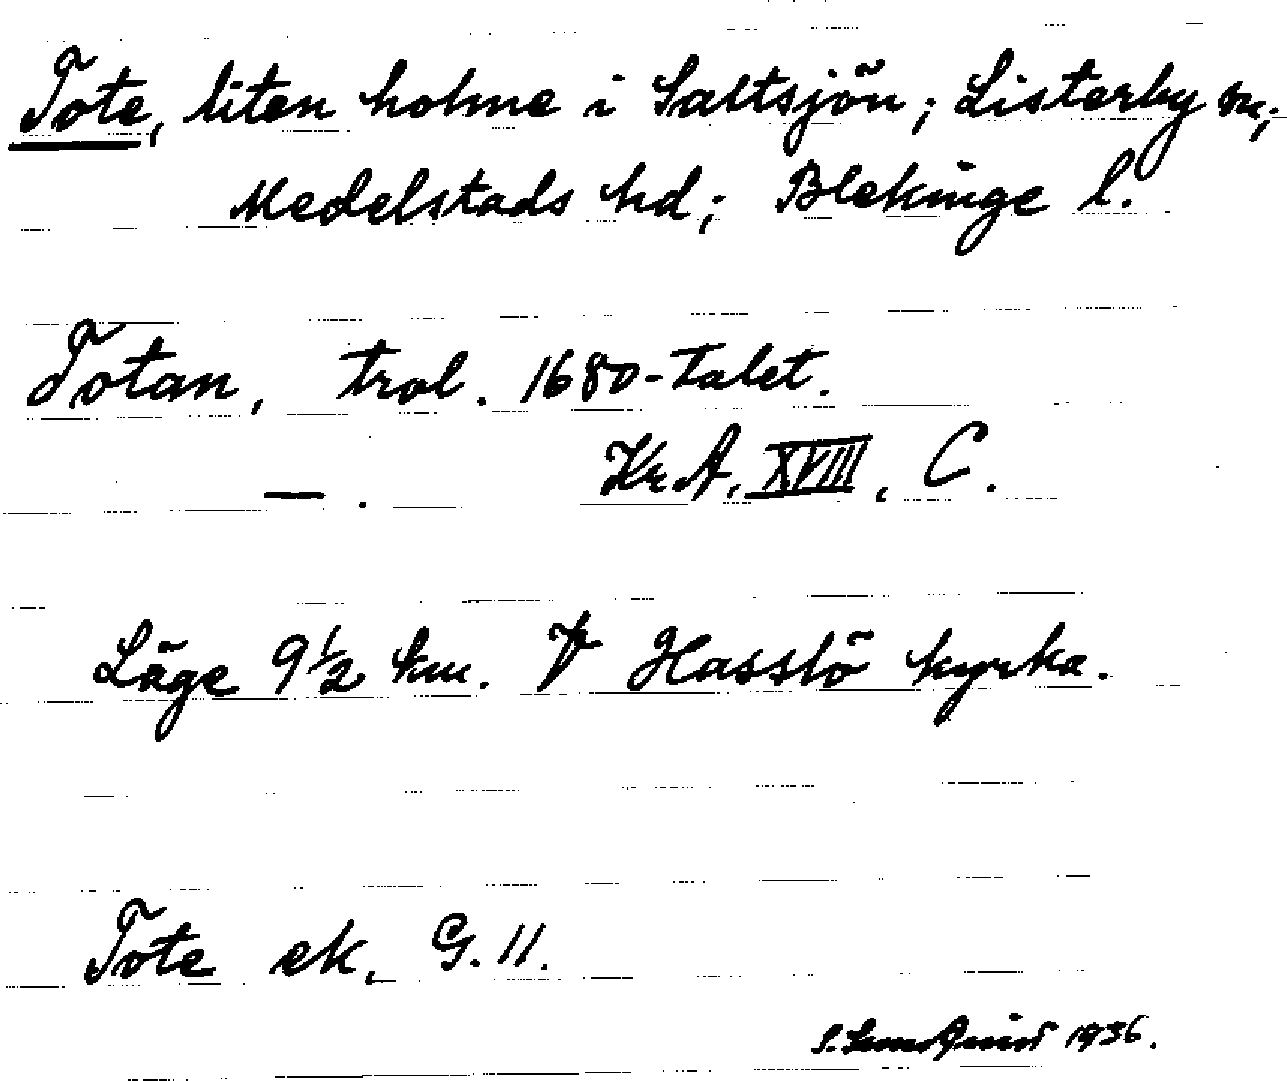 Tote, liten holme i Saltsjön; Listerby sn;
Medelstads hd; Blekinge l.
Totan, trol. 1680-talet.
— . Kr.A, XVIII, C.
Läge 9½ km. V Hasslö kyrka.
Tote ek. G. 11.
1936.